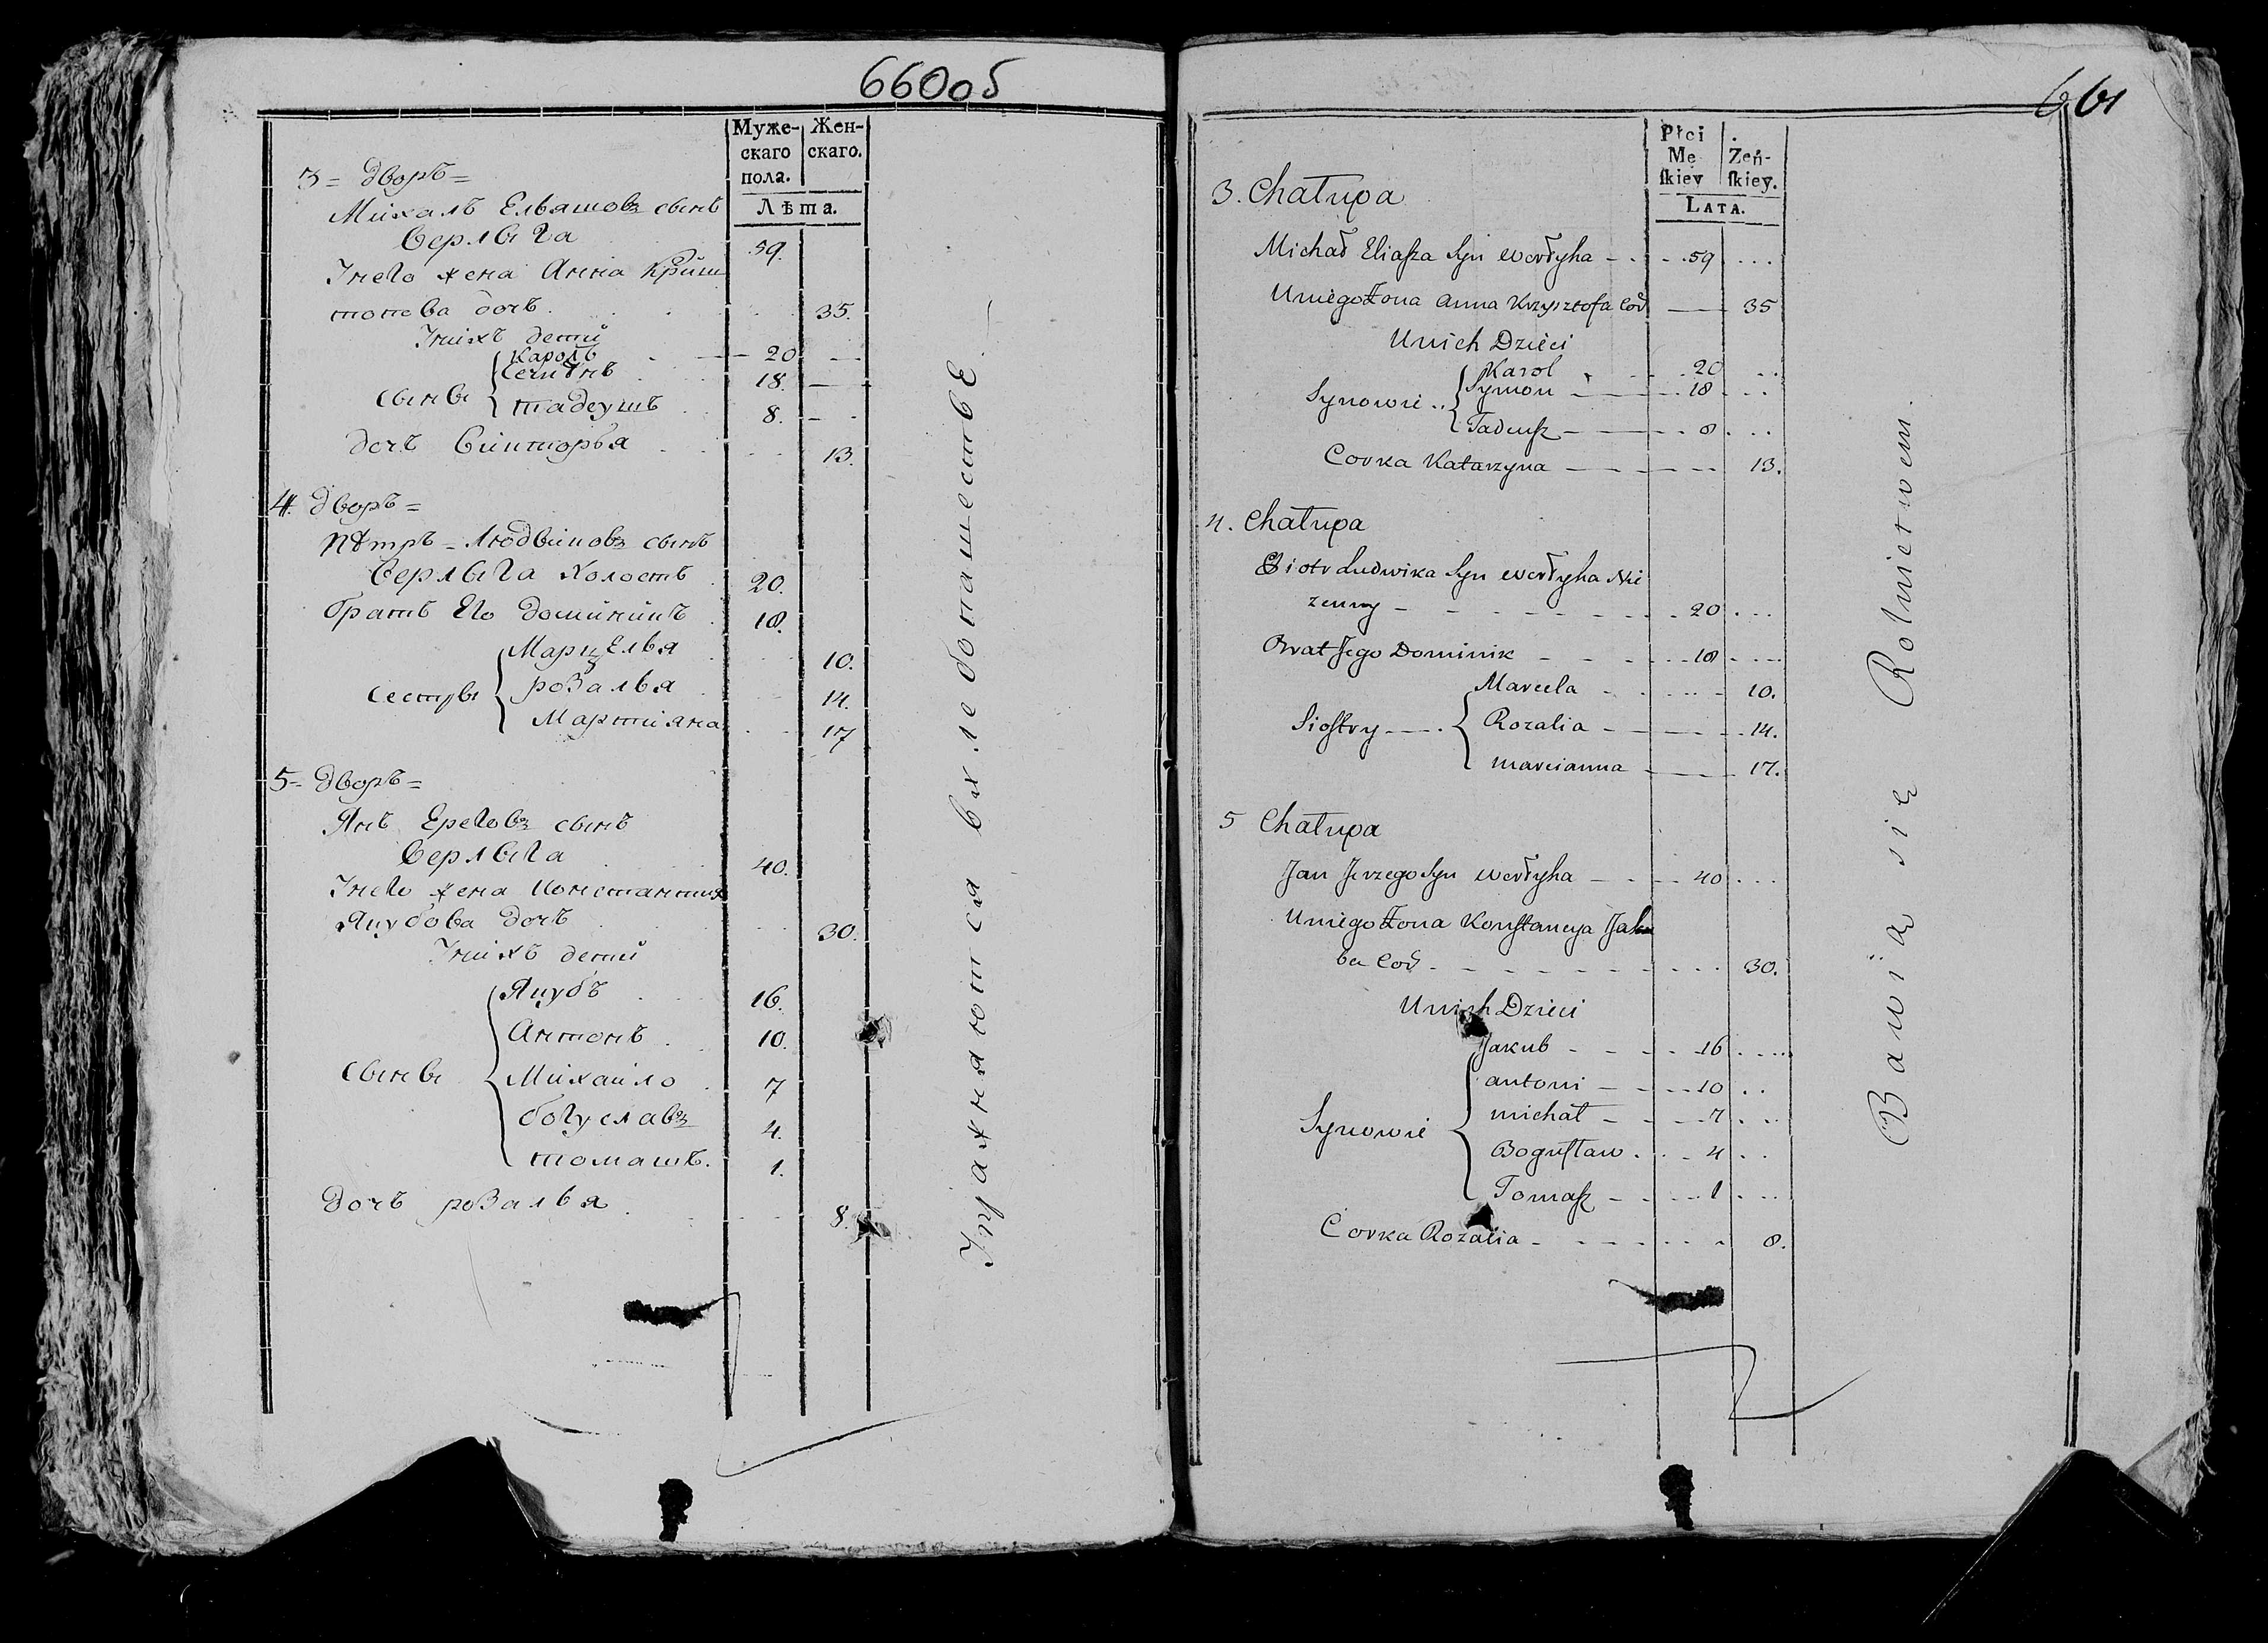 660об
Муже- Жен-
скаго скаго.
пола.
Лѣта.
3= дворъ=
Михалъ Ельяшовъ сынъ
Верлыга 59.
Унего жена Анна Криш
топова дочь. 35.
Унихъ дети
Кароль 20
18.
сыны Тадеушъ 8.
дочь 13.
4. дворъ=
Петръ = Людвиковъ сынъ
Верлыга холостъ 20.
братъ Его Доминикъ 18.
МарцЕлья 10.
сестры розалья 14.
Мартияна 17
5= дворъ=
Янъ Ерегов сынъ
Верлыга 40.
Унего жена Констанция
Якубова дочь 30.
Унихъ дети
Якубъ 16.
Антонъ 10.
Сыны Михайло 7
богуславъ 4.
томашъ. 1.
Дочь розалья 8.
Упражняются в хлебопашествЕ.
661
Płci
Mę Zeń-
ſkiey ſkiey.
LATA.
3. Chałupa
Michał Eliaſza Syn Werłyha 59
Uniego Żona Anna Krzysztofa Cor 35
Unich Dzieci
Karol 20
Synowie Symon 18
Tadeuſz 8
Corka Katarzyna 13.
4. Chałupa
Piotr Ludwika Syn Werłyha Nie
zenny 20
Brat Jego Dominik 18
Marcela 10.
Sioſtry Rozalia 14.
Marcianna 17.
5 Chałupa
Jan Jerzego Syn Werłyha 40
Uniego Żona Konſtancya Jaku
ba Cor 30.
Unich Dzieci
Jakub 16
antoni 10
Synowie michał 7
Boguſław 4
Tomaſz 1
Corka Rozalia 8.
Bawią się Rolnictwem.